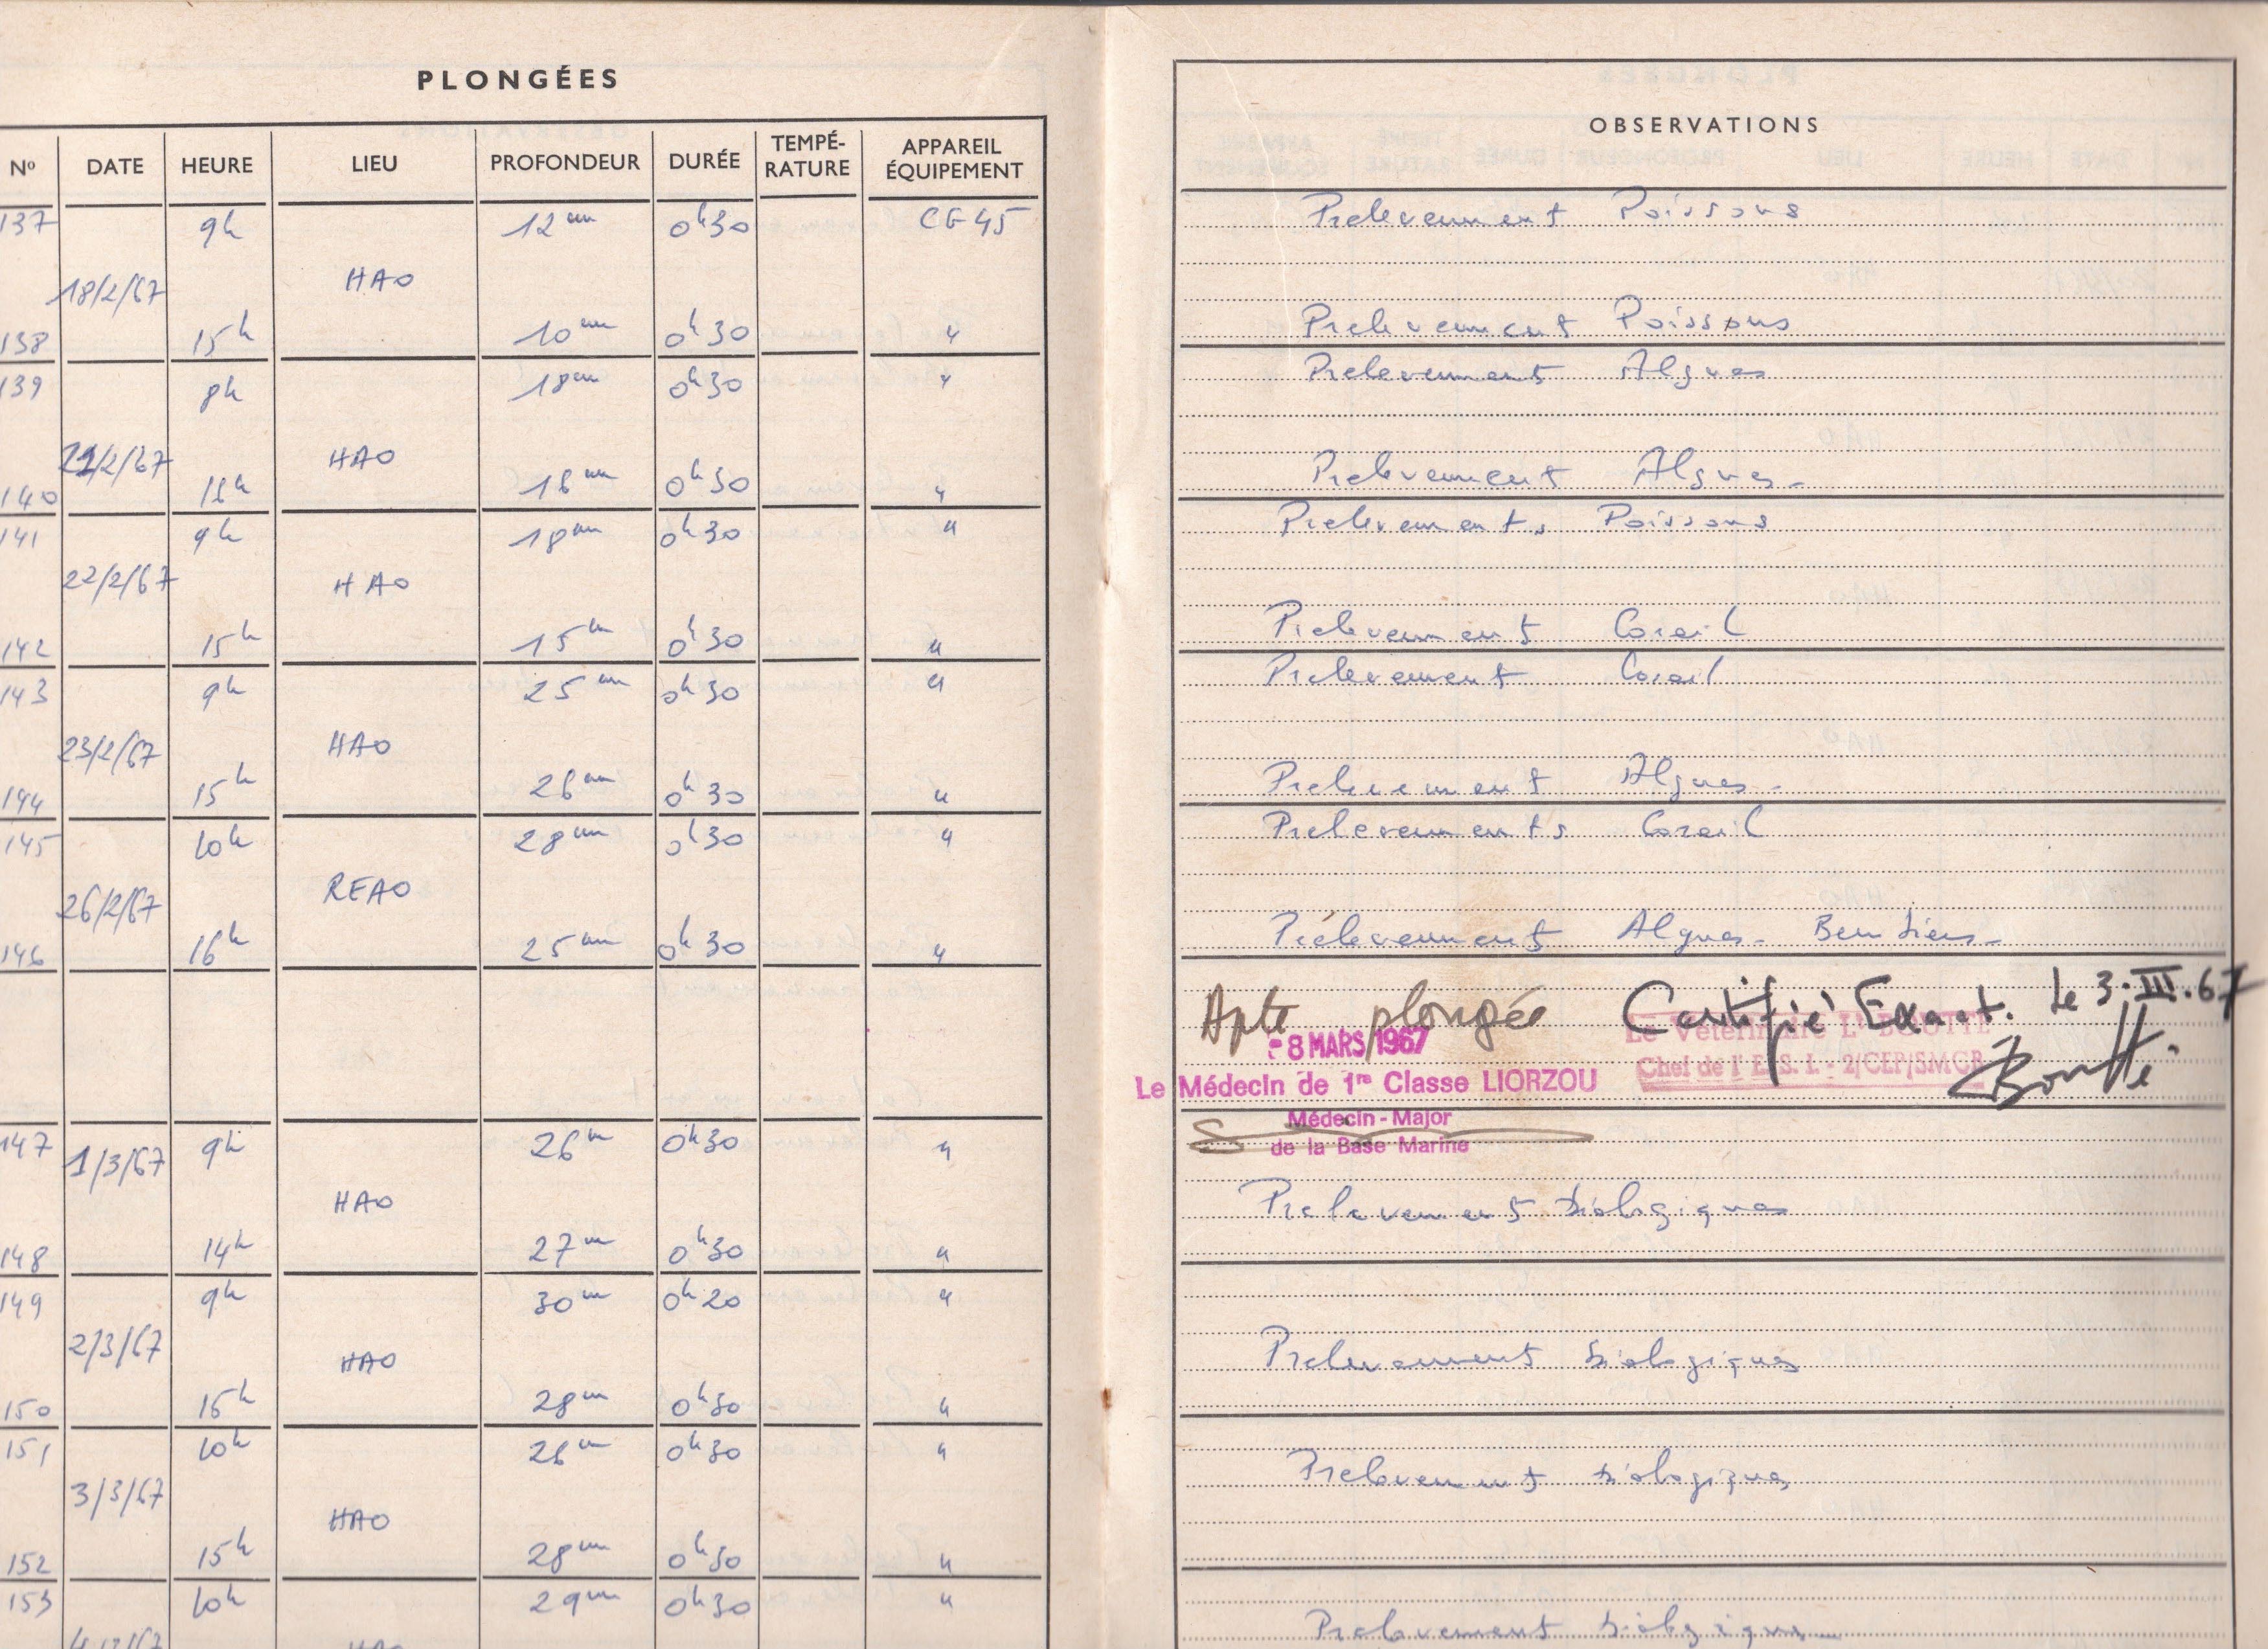 PLONGÉES
Nº DATE HEURE LIEU PROFONDEUR DURÉE TEMPÉ-RATURE APPAREIL ÉQUIPEMENT
137 9h 12m 0h30 CG 45
18/2/67 HAO
138 15h 10m 0h30 "
139 8h 18m 0h30 "
21/2/67 HAO
140 16h 18m 0h30 "
141 9h 18m 0h30 "
22/2/67 HAO
142 15h 15m 0h30 "
143 9h 25m 0h30 "
23/2/67 HAO
144 15h 26m 0h30 "
145 10h 28m 0h30 "
26/2/67 REAO
146 16h 25m 0h30 "
147 9h 26m 0h30 "
1/3/67 HAO
148 14h 27m 0h30 "
149 9h 30m 0h20 "
2/3/67 HAO
150 15h 28m 0h30 "
151 10h 26m 0h30 "
3/3/67 HAO
152 15h 28m 0h30 "
153 10h 29m 0h30 "
HAO
OBSERVATIONS
Prelevement Poissons
Prelevement Poissons
Prelevement Algues
Prelevement Algues -
Prelevements Poissons
Prelevement Corail
Prelevement Corail
Prelevement Algues -
Prelevements Corail
Prélevement Algues - Benitiers -
Apte plongée
- 8 MARS 1967
Le Médecin de 1re Classe LIORZOU
Médecin-Major
de la Base Marine
Certifié Exact. Le 3.III.67
Le Vétérinaire Lt BOUTTE
Chef de l'E.S.I. - 2/CEP/SMCB
Boutte
Prelevement biologiques
Prelevement biologiques
Prelevement biologiques
Prelevement biologiques